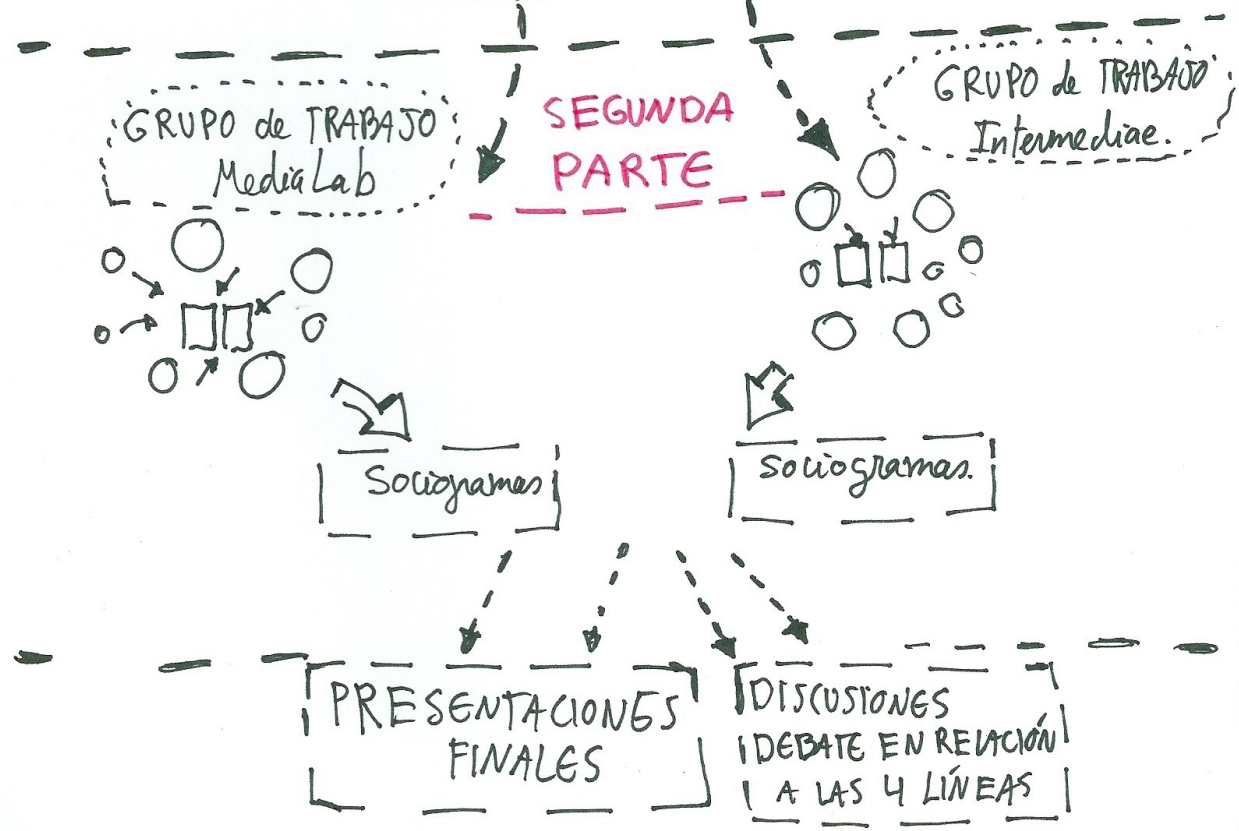 GRUPO de TRABAJO
MediaLab
SEGUNDA
PARTE
GRUPO de TRABAJO
Intermediae.
Sociogramas
Sociogramas.
PRESENTACIONES
FINALES
DISCUSIONES
DEBATE EN RELACIÓN
A LAS 4 LÍNEAS